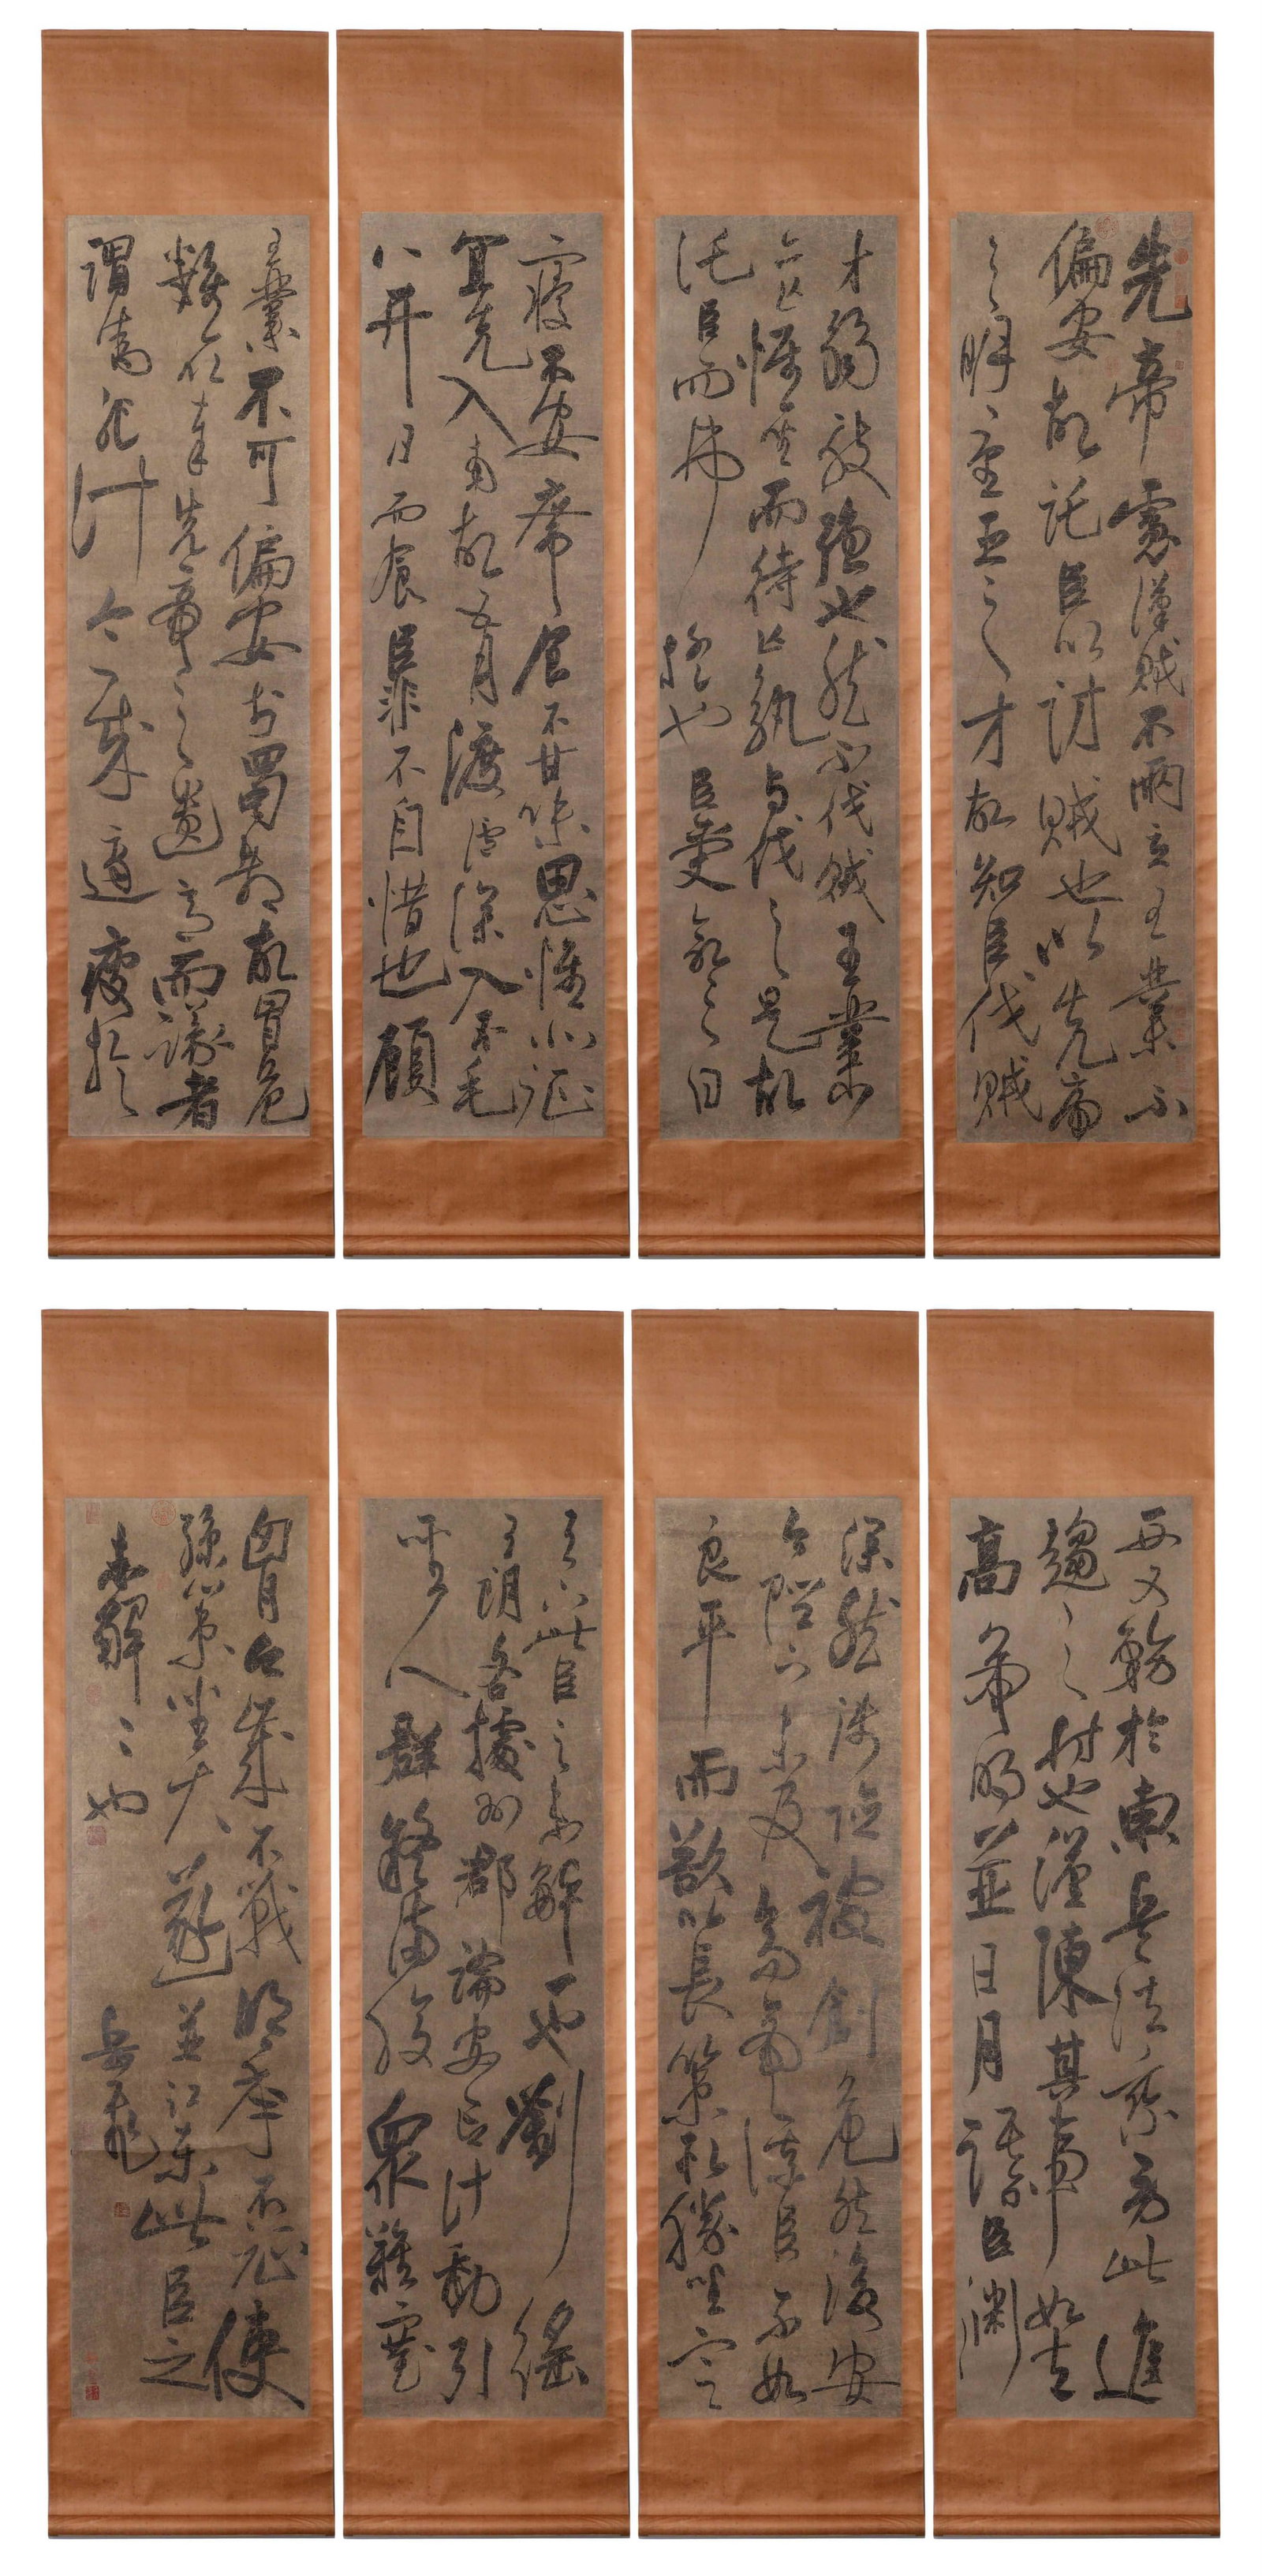 先帝慮漢賊不兩立王業不
偏安故託臣以討賊也以先帝
之明量臣之才故知臣伐賊
才弱敵強也然不伐賊王業
亦亡惟坐而待亡孰與伐之是故
託臣而弗疑也臣受命之日
寢不安席食不甘味思惟北征
宜先入南故五月渡瀘深入不毛
并日而食臣非不自惜也顧
王業不可偏安於蜀都故冒危
難以奉先帝之遺意而議者
謂為非計今賊適疲於
西又務於東兵法乘勞此進
趨之時也謹陳其事如左
高帝明並日月謀臣淵
深然涉險被創危然後安
今陛下未及高帝謀臣不如
良平而欲以長策取勝坐定
天下此臣之未解一也劉繇
王朗各據州郡論安言計動引
聖人群疑滿腹眾難塞
胸今歲不戰明年不征使
孫策坐大遂並江東此臣之
未解二也
岳飛